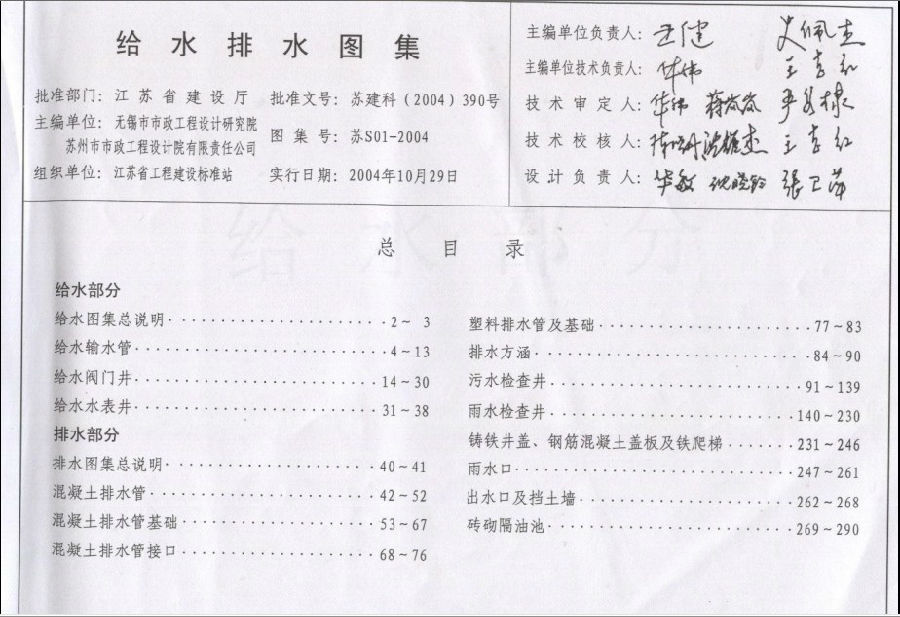 给水排水图集
批准部门：江苏省建设厅 批准文号：苏建科（2004）390号
主编单位：无锡市市政工程设计研究院
苏州市市政工程设计院有限责任公司 图集号：苏S01-2004
组织单位：江苏省工程建设标准站 实行日期：2004年10月29日
主编单位负责人：
主编单位技术负责人：
技术审定人：
技术校核人：
设计负责人：
总目录
给水部分
给水图集总说明 2～3
给水输水管 4～13
给水阀门井 14～30
给水水表井 31～38
排水部分
排水图集总说明 40～41
混凝土排水管 42～52
混凝土排水管基础 53～67
混凝土排水管接口 68～76
塑料排水管及基础 77～83
排水方涵 84～90
污水检查井 91～139
雨水检查井 140～230
铸铁井盖、钢筋混凝土盖板及铁爬梯 231～246
雨水口 247～261
出水口及挡土墙 262～268
砖砌隔油池 269～290